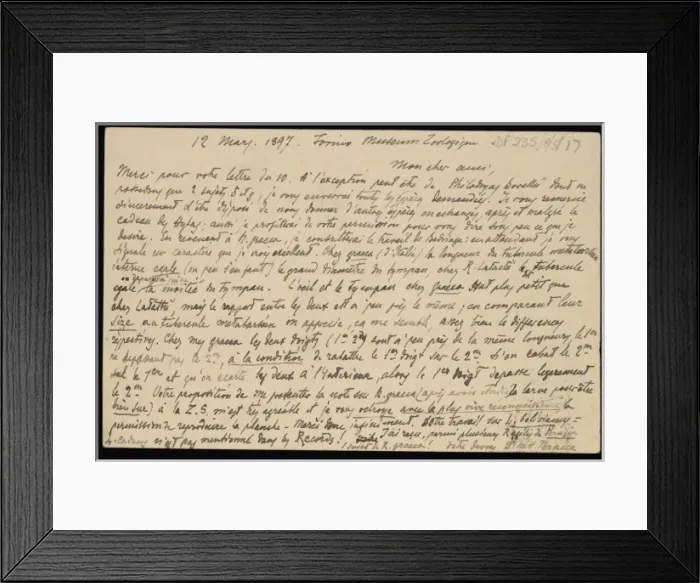 12 Mars. 1897. Torino Museum Zoologique DF 235/ /17
Mon cher ami,
Merci pour votre lettre du 10. A l'exception peut être de Philodryas dont ne
possedons que 2 safety, je vous enverrai toutes les espèces demandées. Je vous remercie
sincerement d'être disposé de nous donner d'autres espèces en echange, après et malgré le
cadeau de Hylas; aussi je profiterai de votre permission pour vous dire bien peu ce que je
desire. En revenant à R. graeca, je consulterai le travail de Bedriaga; en attendant je vous
signale un caractère que je crois excellent. Chez graeca (d'Italie) la longueur du tubercule metatarsien
interne egale (un peu s'en faut) le grand diamètre du tympan, chez R. Latastii le tubercule
egale la moitiée du tympan. L'oeil et le tympan chez graeca sont plus petit que
chez Latastii, mais le rapport entre les deux est à peu près le même; en comparant leur
size au tubercule metatarsien on apprecie, ça me semble, assez bien les differences
respectives. Chez mes graeca les deux doigts (1er 2me) sont à peu près de la même longueur, le 1er
ne depassant pas le 2me, à la condition de rabattre le 1er doigt sur le 2me. Si on rabat le 2me
sur le 1er et qu'on ecarte les deux à l'interieur, alors le 1er doigt depasse legerement
le 2me. Votre proposition de me presenter la note sur R. graeca (après avoir etudié la larve peut-être
bien sur) à la Z.S. m'est très agreable et je vous octroye avec la plus vive reconnaissance la
permission de reproduire la planche - Merci donc infiniment. Votre travail sur
n'est pas mentionné dans les Records! J'ai reçu, parmi plusieurs Reptiles de
R. graeca! votre devoué Peracca